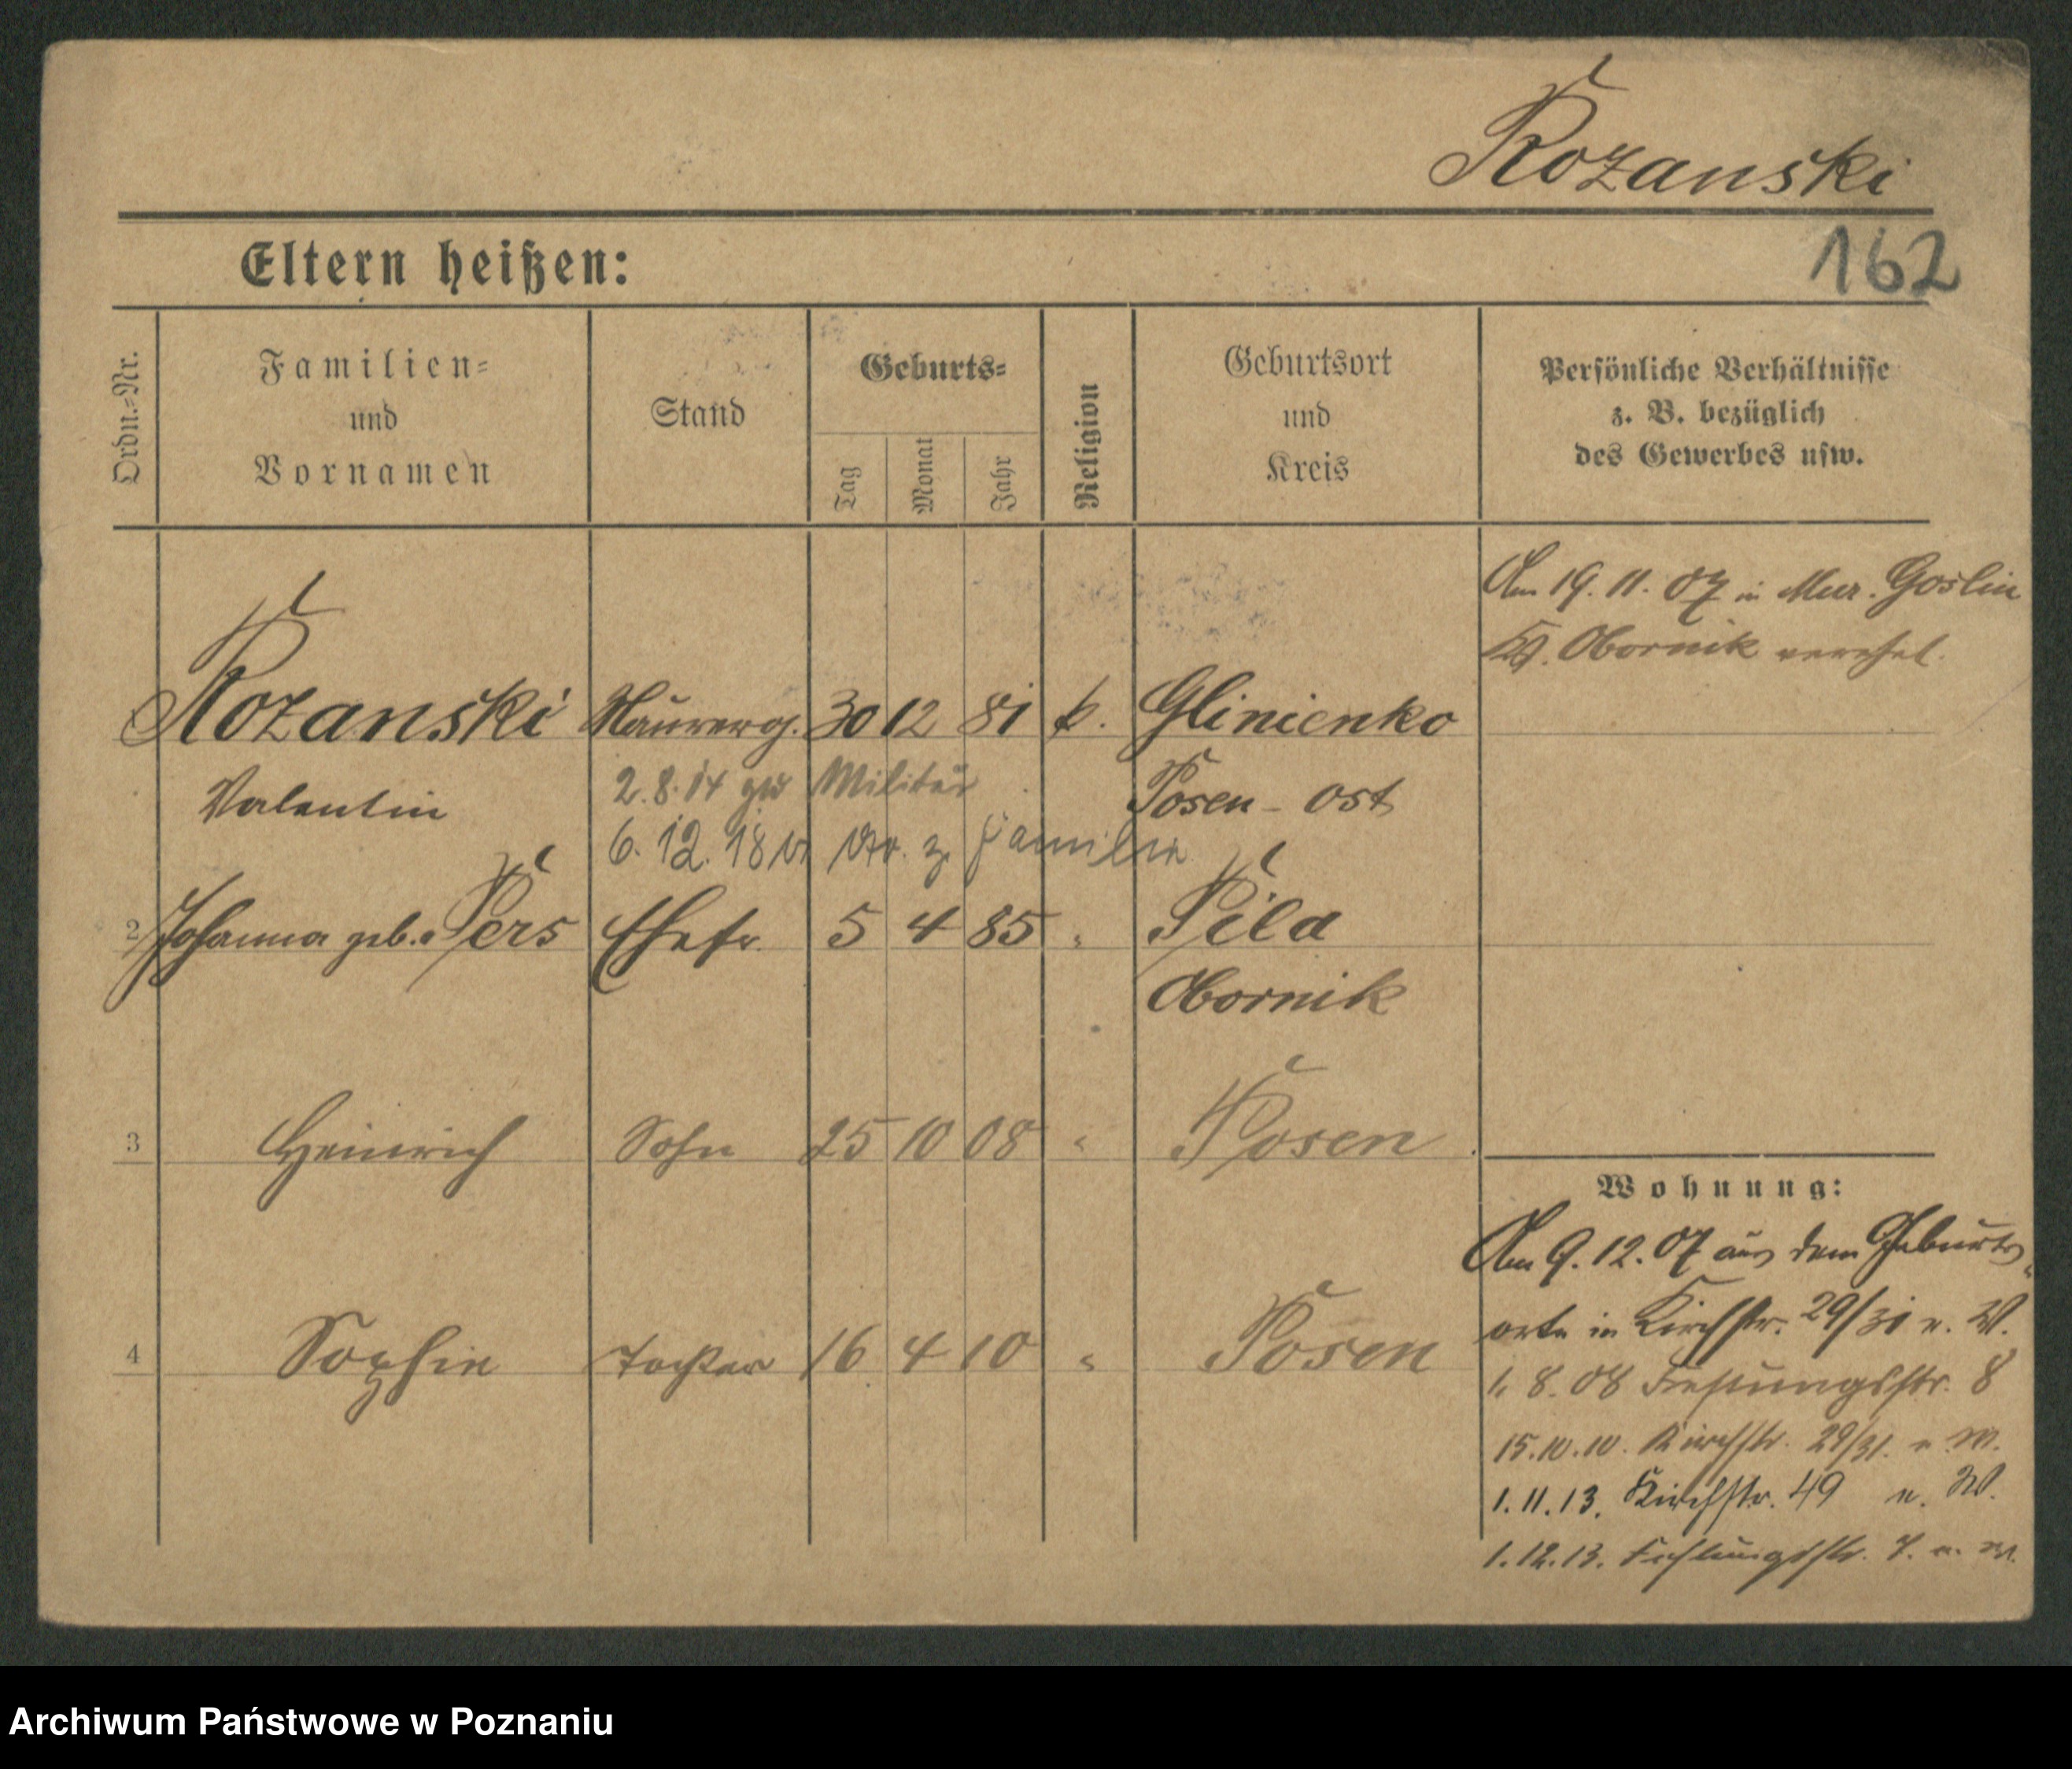 Rozanski
162
Eltern heißen:
Ordn.-Nr.
Familien-
und
Vornamen
Stand
Geburts-
Tag
Monat
Jahr
Religion
Geburtsort
und
Kreis
Persönliche Verhältnisse
z. B. bezüglich
des Gewerbes usw.
Am 19. 11. 07 in Mur. Goslin
Kr. Obornik verehel.
Rozanski Maurerg. 30 12 81 k. Glinienko
Valentin
Posen-Ost
2.8.14 zum Militär
6.12.18 v. z. Familie
2 Johanna geb. Pers Ehefr. 5 4 85 " Pila
Obornik
3 Heinrich Sohn 25 10 08 " Posen
4 Sophie Tochter 16 4 10 " Posen
Wohnung:
Am 9. 12. 07 aus dem Geburts-
orte in Kirchstr. 29/31 n. W.
1. 8. 08 Festungsstr. 8
15.10.10. Kirchstr. 29/31. n. W.
1. 11. 13. Kirchstr. 49 n. W.
1. 12. 13. Festungsstr. 7. n. W.
Archiwum Państwowe w Poznaniu